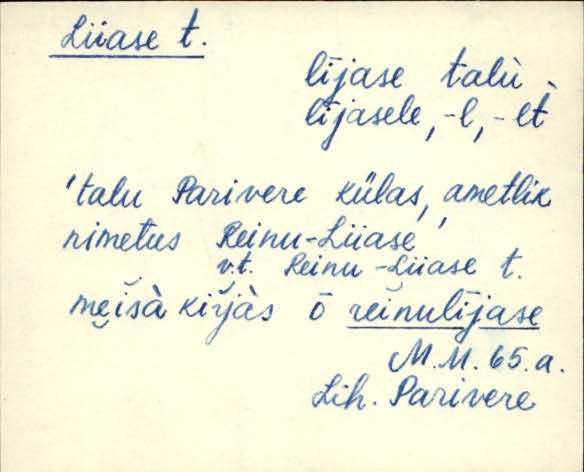 Liiase t.
lījase talù
lījasele, -l, -lt
'talu Parivere külas, ametlik
nimetus Reinu-Liiase'
v.t. Reinu-Liiase t.
mẽisà kirjàs ō reinulījase
M.M. 65.a.
Lih. Parivere